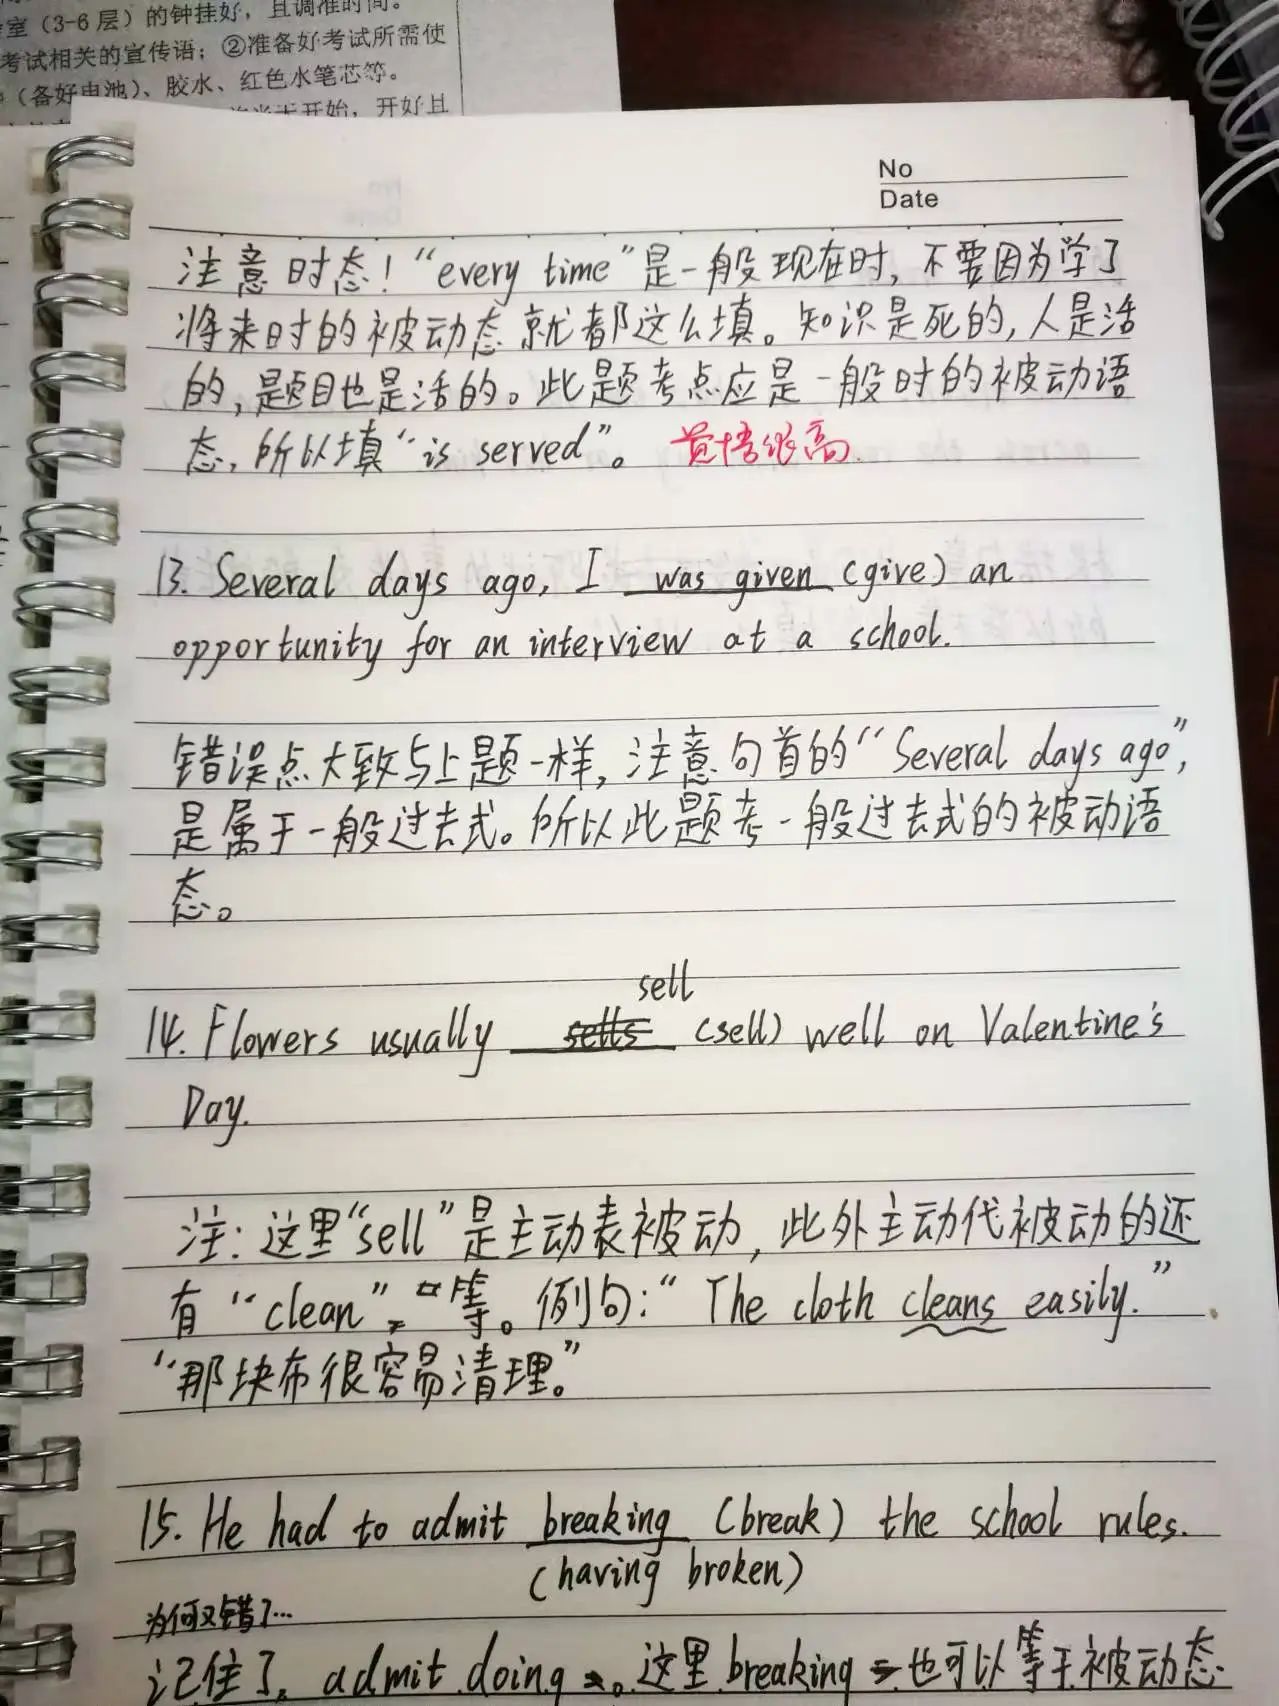 室（3-6层）的钟挂好，且调准时间。
考试相关的宣传语；②准备好考试所需使
（备好电池）、胶水、红色水笔芯等。
开始，开好且
No
Date
注意时态！“every time”是一般现在时，不要因为学了
将来时的被动态就都这么填。知识是死的，人是活
的，题目也是活的。此题考点应是一般时的被动语
态，所以填“is served”。 觉悟很高
13. Several days ago, I was given (give) an
opportunity for an interview at a school.
错误点大致与上题一样，注意句首的“Several days ago”，
是属于一般过去式。所以此题考一般过去式的被动语
态。
sell
14. Flowers usually sells (sell) well on Valentine's
Day.
注：这里“sell”是主动表被动，此外主动代被动的还
有“clean”等。例句：“The cloth cleans easily.”
“那块布很容易清理。”
15. He had to admit breaking (break) the school rules.
(having broken)
为何又错了...
记住了，admit doing。这里breaking也可以等于被动态